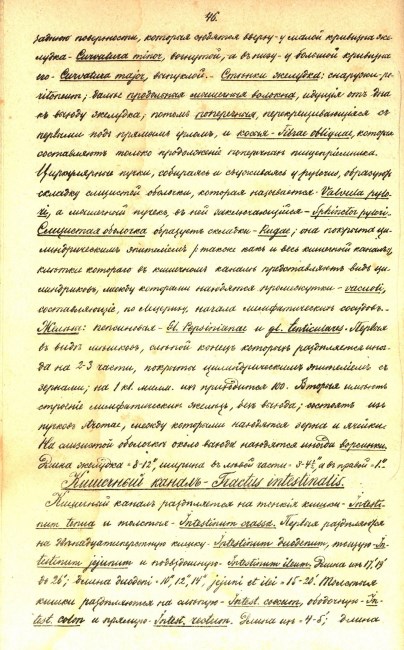 46.
заднюю поверхности, которыя сходятся вверху - у малой кривизны же-
лудка - Curvatura minor, вогнутой, а внизу - у большой кривизны
его - Curvatura major, выпуклой. - Стѣнки желудка: снаружи pe-
ritoneum; далѣе продольныя мышечныя волокна, идущія отъ дна
къ выходу желудка, потомъ поперечныя, перекрещивающіяся съ
первыми подъ прямымъ угломъ, и косыя - Fibrae obliquae, которыя
составляютъ только продолженіе поперечныхъ пищепріемника.
Циркулярные пучки, собираясь и съуживаясь у pylori, образуютъ
складку слизистой оболочки, которая называется - Valvula pylo-
ri, а мышечный пучекъ, въ ней заключающійся - Sphincter pylori.
Слизистая оболочка образуетъ складки - Rugae; она покрыта ци-
линдрическимъ эпителіемъ (также какъ и весь кишечный каналъ),
клѣтки котораго въ кишечномъ каналѣ представляютъ видъ ци-
линдриковъ, между которыми находятся промежутки - vacuoli,
составляющіе, по , начала лимфатическихъ сосудовъ.
Железы: пепсиновыя - Gl. Pepsinianae и gl. lenticulares. Первыя
въ видѣ мѣшковъ, слѣпой конецъ которыхъ раздѣляется иног-
да на 2-3 части, покрыты цилиндрическимъ эпителіемъ съ
зернами; на 1 кв. милл. ихъ приходится 100. Вторыя имѣютъ
строеніе лимфатическихъ железъ, безъ выхода; состоятъ изъ
пучковъ клѣтчат, между которыми находятся зерна и ячейки.
На слизистой оболочкѣ около выхода находятся иногда ворсинки.
Длина желудка - 8-12", ширина въ лѣвой части - 3-4½", а въ правой - 1".
Кишечный каналъ - Tractus intestinalis.
Кишечный каналъ раздѣляется на тонкія кишки - Intesti-
num tenua и толстыя - Intestinum crassa. Первыя раздѣляются
на двѣнадцатиперстную кишку - Intestinum duodenum, тощую - In-
testinum jejunum и подвздошную - Intestinum ileum. Длина ихъ 17', 19'
до 26'; длина duodeni - 10", 12", 14", jejuni et ilei - 15-20'. Толстыя
кишки раздѣляются на слѣпую - Intest. coecum, ободочную - In-
test. colon и прямую - Intest. rectum. Длина ихъ - 4-5'; длина